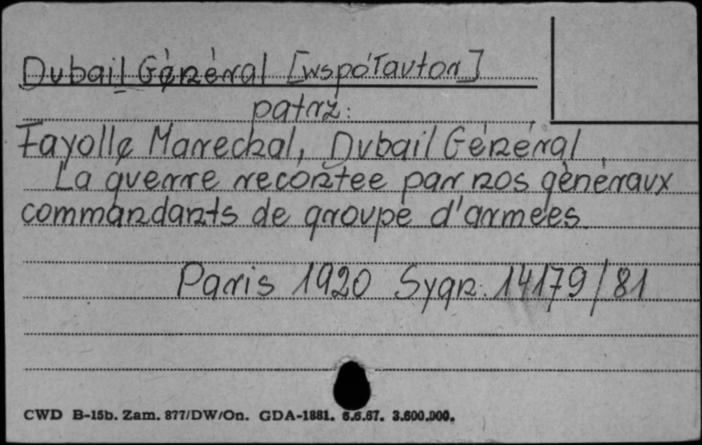 Dubail Général [współautor]
patrz:
Fayolle Marechal, Dubail Général
La guerre recontee par nos généraux
commandants de groupe d'armees.
Paris 1920 Sygn. 14179/81
CWD B-15b. Zam. 877/DW/On. GDA-1881. 6.6.67. 3.600.000.